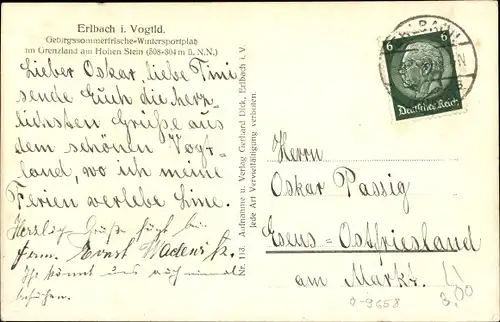 Erlbach i. Vogtld.
Gebirgssommerfrische-Wintersportplatz
im Grenzland am Hohen Stein (508-804 m ü. N.N.)
Lieber Oskar, liebe Tini
sende Euch die herz-
lichsten Grüße aus
dem schönen Vogt-
land, wo ich meine
Ferien verlebe Line.
Herzlich Grüße fügt bei
Ernst
Ihr könnt uns auch einmal
besuchen.
Nr. 113. Aufnahme u. Verlag Gerhard Dick, Erlbach i. V.
Jede Art Vervielfältigung verboten.
6 6
Deutsches Reich
Herrn
Oskar Passig
Esens=Ostfriesland
am Markt.
0-9658
3,00